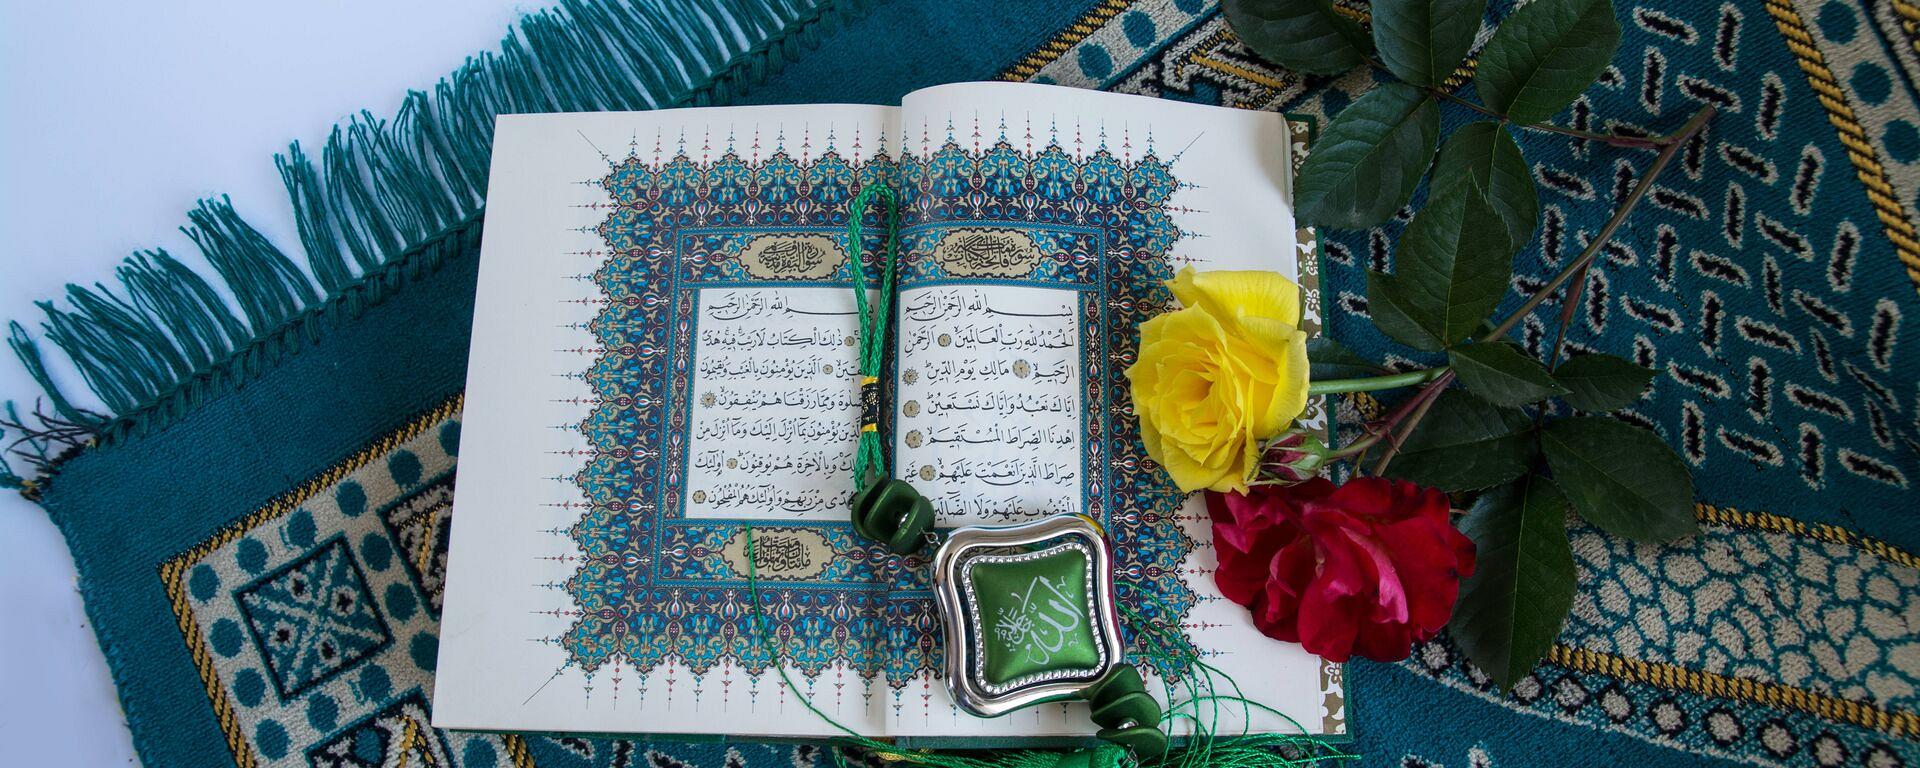 سورة فاتحة الكتاب
بِسْمِ اللهِ الرَّحْمٰنِ الرَّحِيمِ
اَلْحَمْدُ لِلّٰهِ رَبِّ الْعَالَمِينَ ۝ اَلرَّحْمٰنِ
الرَّحِيمِ ۝ مَالِكِ يَوْمِ الدِّينِ ۝
اِيَّاكَ نَعْبُدُ وَاِيَّاكَ نَسْتَعِينُ ۝
اِهْدِنَا الصِّرَاطَ الْمُسْتَقِيمَ ۝
صِرَاطَ الَّذِينَ اَنْعَمْتَ عَلَيْهِمْ ۝ غَيْرِ
الْمَغْضُوبِ عَلَيْهِمْ وَلَا الضَّالِّينَ
سورة البقرة
بِسْمِ اللهِ الرَّحْمٰنِ الرَّحِيمِ
ذٰلِكَ الْكِتَابُ لَا رَيْبَ فِيهِ هُدًى
اَلَّذِينَ يُؤْمِنُونَ بِالْغَيْبِ وَيُقِيمُونَ
وَمِمَّا رَزَقْنَاهُمْ يُنْفِقُونَ ۝
يُؤْمِنُونَ بِمَا اُنْزِلَ اِلَيْكَ وَمَا اُنْزِلَ مِنْ
وَبِالْاٰخِرَةِ هُمْ يُوقِنُونَ ۝ اُولٰئِكَ
هُدًى مِنْ رَبِّهِمْ وَاُولٰئِكَ هُمُ الْمُفْلِحُونَ ۝
الله